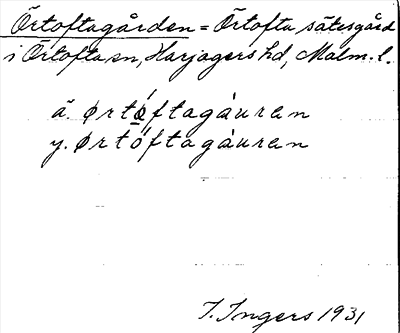 Örtoftagården = Örtofta sätesgård
i Örtofta sn, Harjagers hd, Malm. l.
ä. ørtóftagáuran
y. ørtóftagàuran
I. Ingers 1931